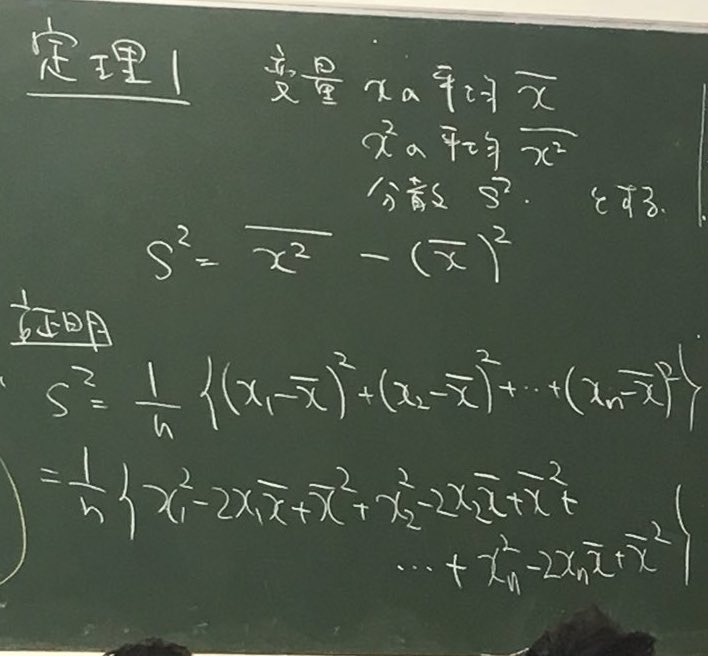 定理1 変量 xの平均 x̅
x²の平均 \overline{x²}
分散 s². とする.
s² = \overline{x²} - (x̅)²
証明
s² = 1/n {(x₁-x̅)²+(x₂-x̅)²+‥+(xₙ-x̅)²}
= 1/n {x₁²-2x₁x̅+x̅²+x₂²-2x₂x̅+x̅²+
…+xₙ²-2xₙx̅+x̅²}